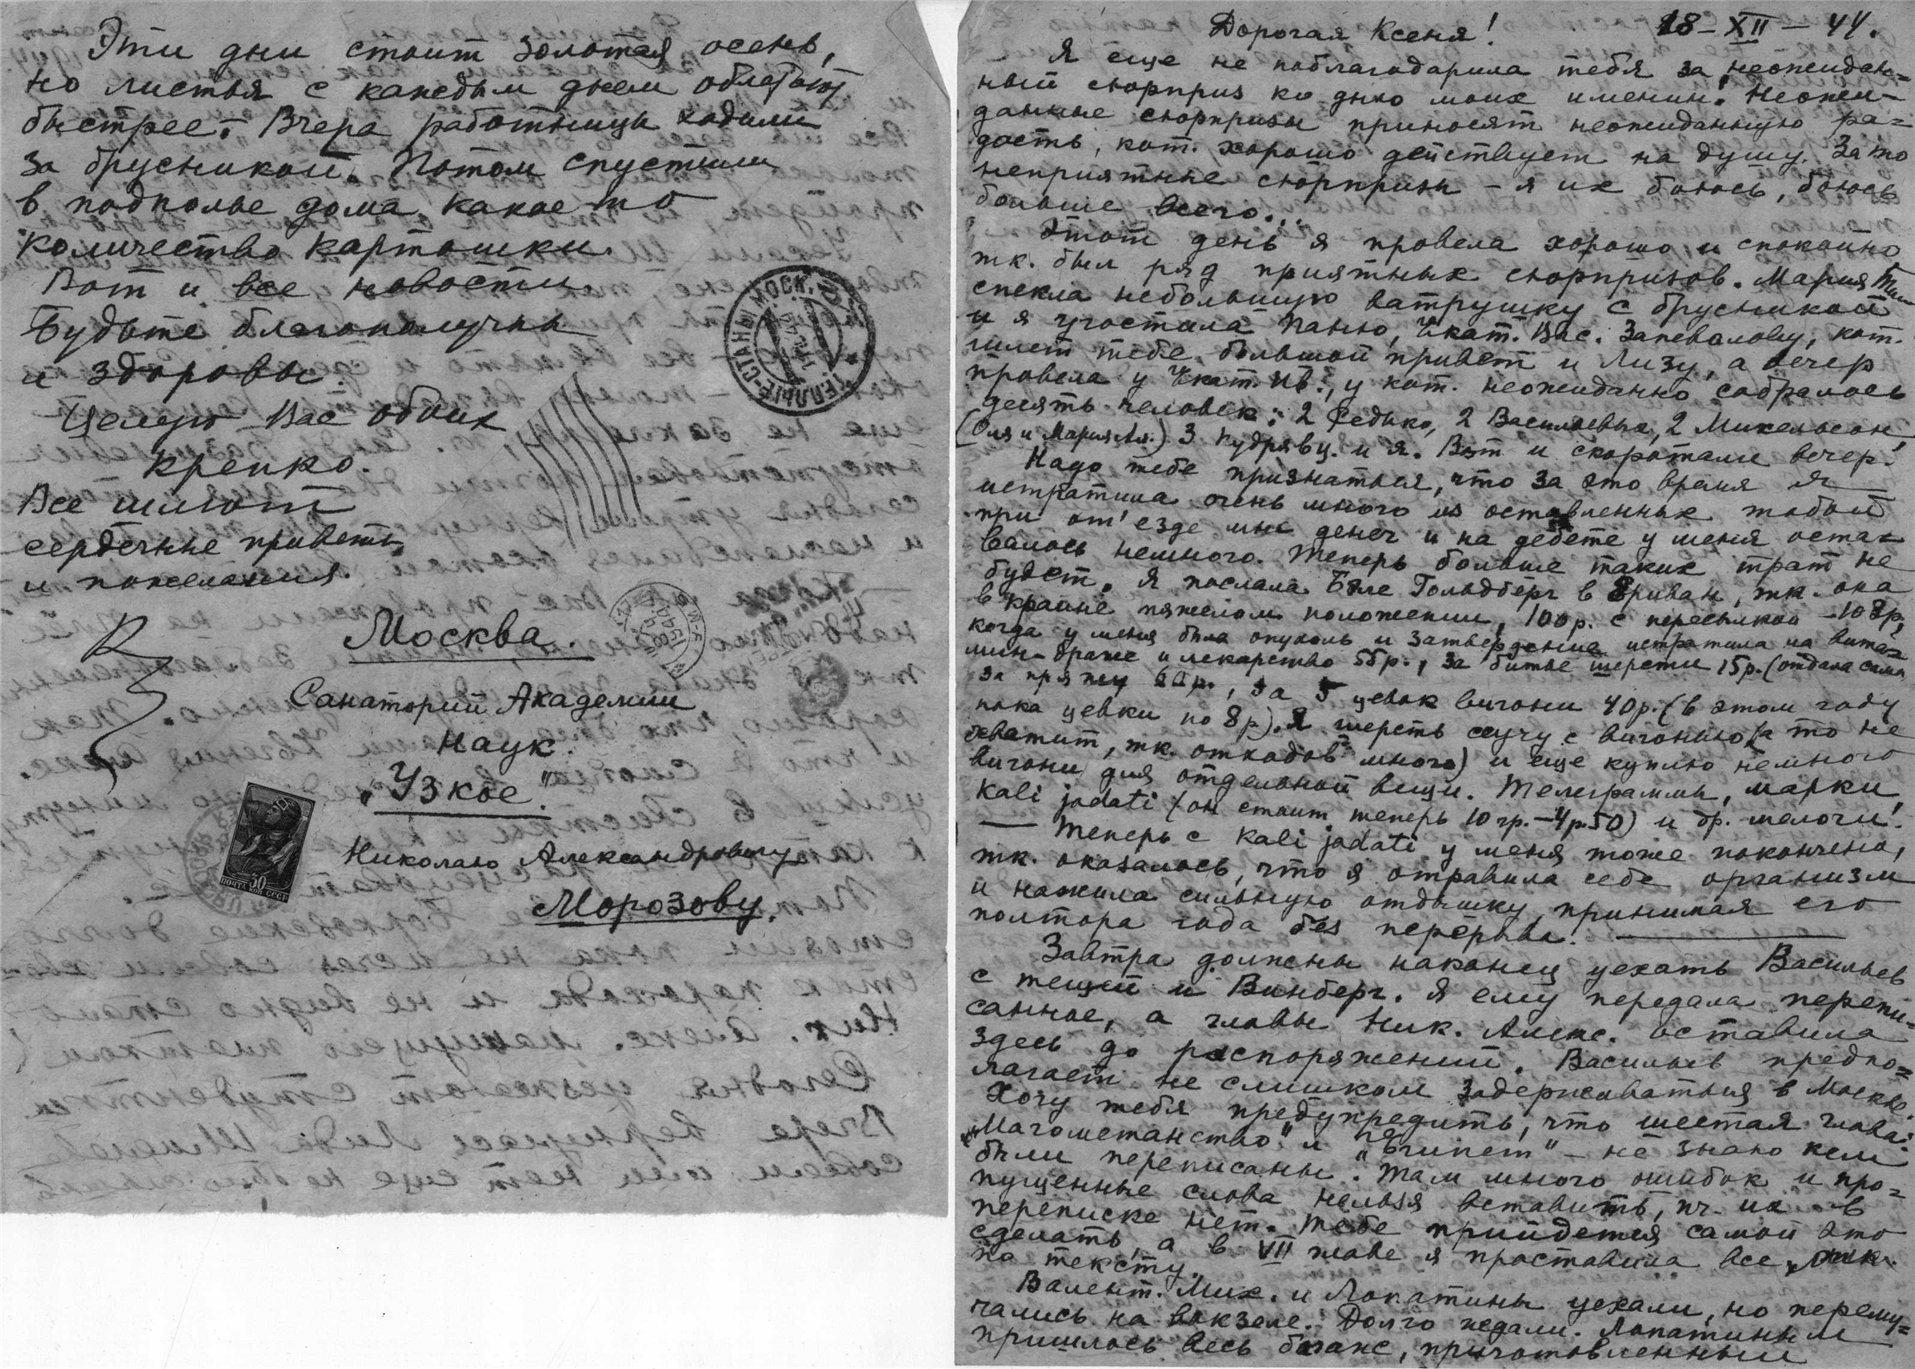 Эти дни стоит золотая осень,
но листья с каждым днем облетают
быстрее. Вчера работницы ходили
за брусникой. Потом спустили
в подполье дома какое то
количество картошки.
Вот и все новости.
Будьте благополучны
и здоровы.
Целую Вас обоих
крепко.
Все шлют
сердечные приветы
и пожелания.
Москва.
Санаторий Академии
Наук.
"Узкое".
Николаю Александровичу
Морозову.
ПОЧТА СССР
30
Дорогая Ксеня! 18-XII-44.
Я еще не поблагодарила тебя за неожидан=
ный сюрприз ко дню моих имении! Неожи-
данные сюрпризы приносят неожиданную ра=
дость, кот. хорошо действует на душу. Зато
неприятные сюрпризы - я их боюсь, боюсь
больше всего...
Этот день я провела хорошо и спокойно
тк. был ряд приятных сюрпризов. Мария
спекла небольшую ватрушку с брусникой
и я угостила Паню, Екат. Вас. Запевалову, кот.
шлет тебе большой привет и Лизу, а вечер
провела у Екат. Ив., у кот. неожиданно собралось
десять человек: 2 Федько, 2 Васильевых, 2 Михельсон
(Оля и Мария Ал.) 3 Кудрявц. и я. Вот и скоротали вечер!
Надо тебе признаться, что за это время я
истратила очень много из оставленных тобой
при от'езде мне денег и на дебете у меня оста=
валось немного. Теперь больше таких трат не
будет. Я послала Бэле Гольдберг в Эриван, тк. она
в крайне тяжелом положении, 100р. с пересылкой 108р,
когда у меня была опухоль и затвердение истратила на вита=
мин-драже и лекарство 55р., за битье шерсти 15р. (отдала сама
за пряжу р., за 5 цевок вигони 40р. (в этом году
пока цевки по 8р). Я шерсть сучу с вигонию (а то не
хватит, тк. отходов много) и еще куплю немного
вигони для отдельной вещи. Телеграммы, марки,
Kali jodati (он стоит теперь 10 гр. - 4р.50) и др. мелочи!
— Теперь с Kali jodati у меня тоже покончено,
тк. оказалось, что я отравила себе организм
и нажила сильную отдышку, принимая его
полтора года без перерыва!
Завтра должны наконец уехать Васильев
с тещей и Винберг. Я ему передала перепи=
санное, а главы Ник. Алекс. оставила
здесь до распоряжений. Васильев предпо=
лагает не слишком задерживаться в Москве.
Хочу тебя предупредить, что шестая глава:
"Магометанство" и "Египет" - не знаю кем
были переписаны. Там много ошибок и про=
пущенные слова нельзя вставить, пч. их в
переписке нет. Тебе прийдется самой это
сделать, а в VII главе я проставила все
по тексту.
Валент. Мих. и Лопатины уехали, но перему=
чались на вокзале. Долго ждали. Лопатиным
пришлось весь багаж, приготовленный